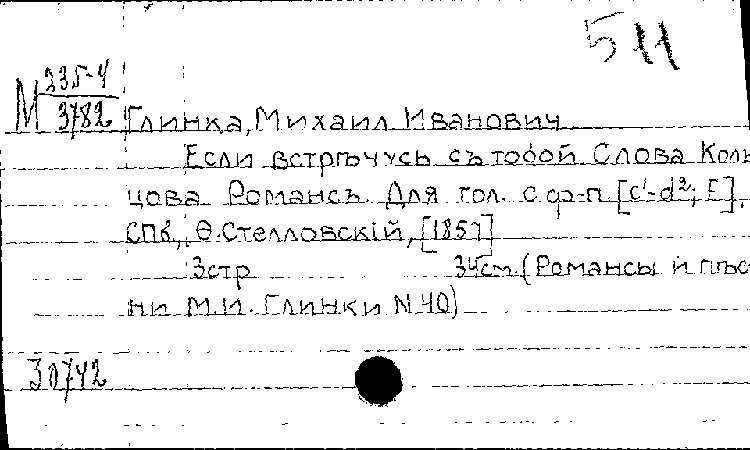 511
М 235-4
3782
Глинка, Михаил Иванович
Если встрѣчусь съ тобой. Слова Коль
цова. Романсъ. Для гол. с ф-п. [c¹-d²; E].
СПб., Ѳ. Стелловскій, [1857]
3стр 34см. (Романсы и пѣс
ни М.И. Глинки N 40)
30742